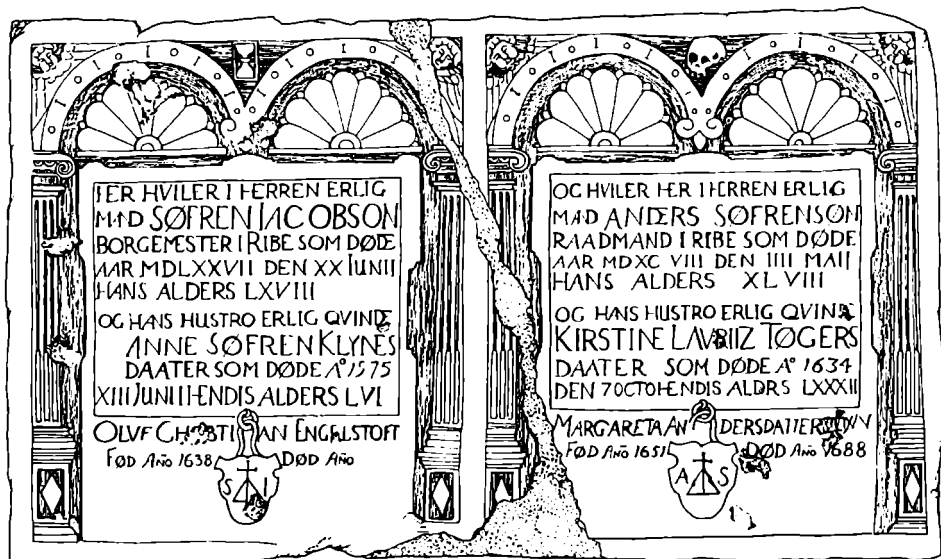 HER HVILER I HERREN ERLIG
MAD SØFREN IACOBSON
BORGEMESTER I RIBE SOM DØDE
AAR MDLXXVII DEN XX IUNII
HANS ALDERS LXVIII
OG HANS HUSTRO ERLIG QVINDE
ANNE SØFREN KLYNES
DAATER SOM DØDE Aº 1575
XIII JUNII HENDIS ALDERS LVI
OLVF CHRISTIAN ENGELSTOFT
FØD Año 1638 DØD Año
S I
OG HVILER HER I HERREN ERLIG
MAD ANDERS SØFRENSØN
RAADMAND I RIBE SOM DØDE
AAR MDXCVIII DEN IIII MAII
HANS ALDERS XLVIII
OG HANS HUSTRO ERLIG QVINDE
KIRSTINE LAVRIIZ TØGERS
DAATER SOM DØDE Aº 1634
DEN 7 OCTO HENDIS ALDRS LXXXII
MARGARETA ANDERSDATTER
FØD Año 1651 DØD Año 1688
A S